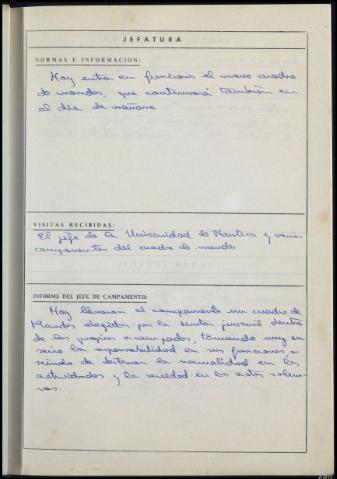 JEFATURA
NORMAS E INFORMACION:
Hoy entra en funciones el nuevo cuadro
de mandos, que continuará también en
el día de mañana
VISITAS RECIBIDAS:
El jefe de la Universidad de Nautica y varios
componentes del cuadro de mando
INFORME DEL JEFE DE CAMPAMENTO:
Hoy llevaron el campamento un cuadro de
Mandos elegidos por la Junta juvenil dentro
de los propios acampados, tomando muy en
serio la responsabilidad en sus funciones,
siendo de destacar la normalidad en las
actividades y la seriedad en los actos solem-
nes.